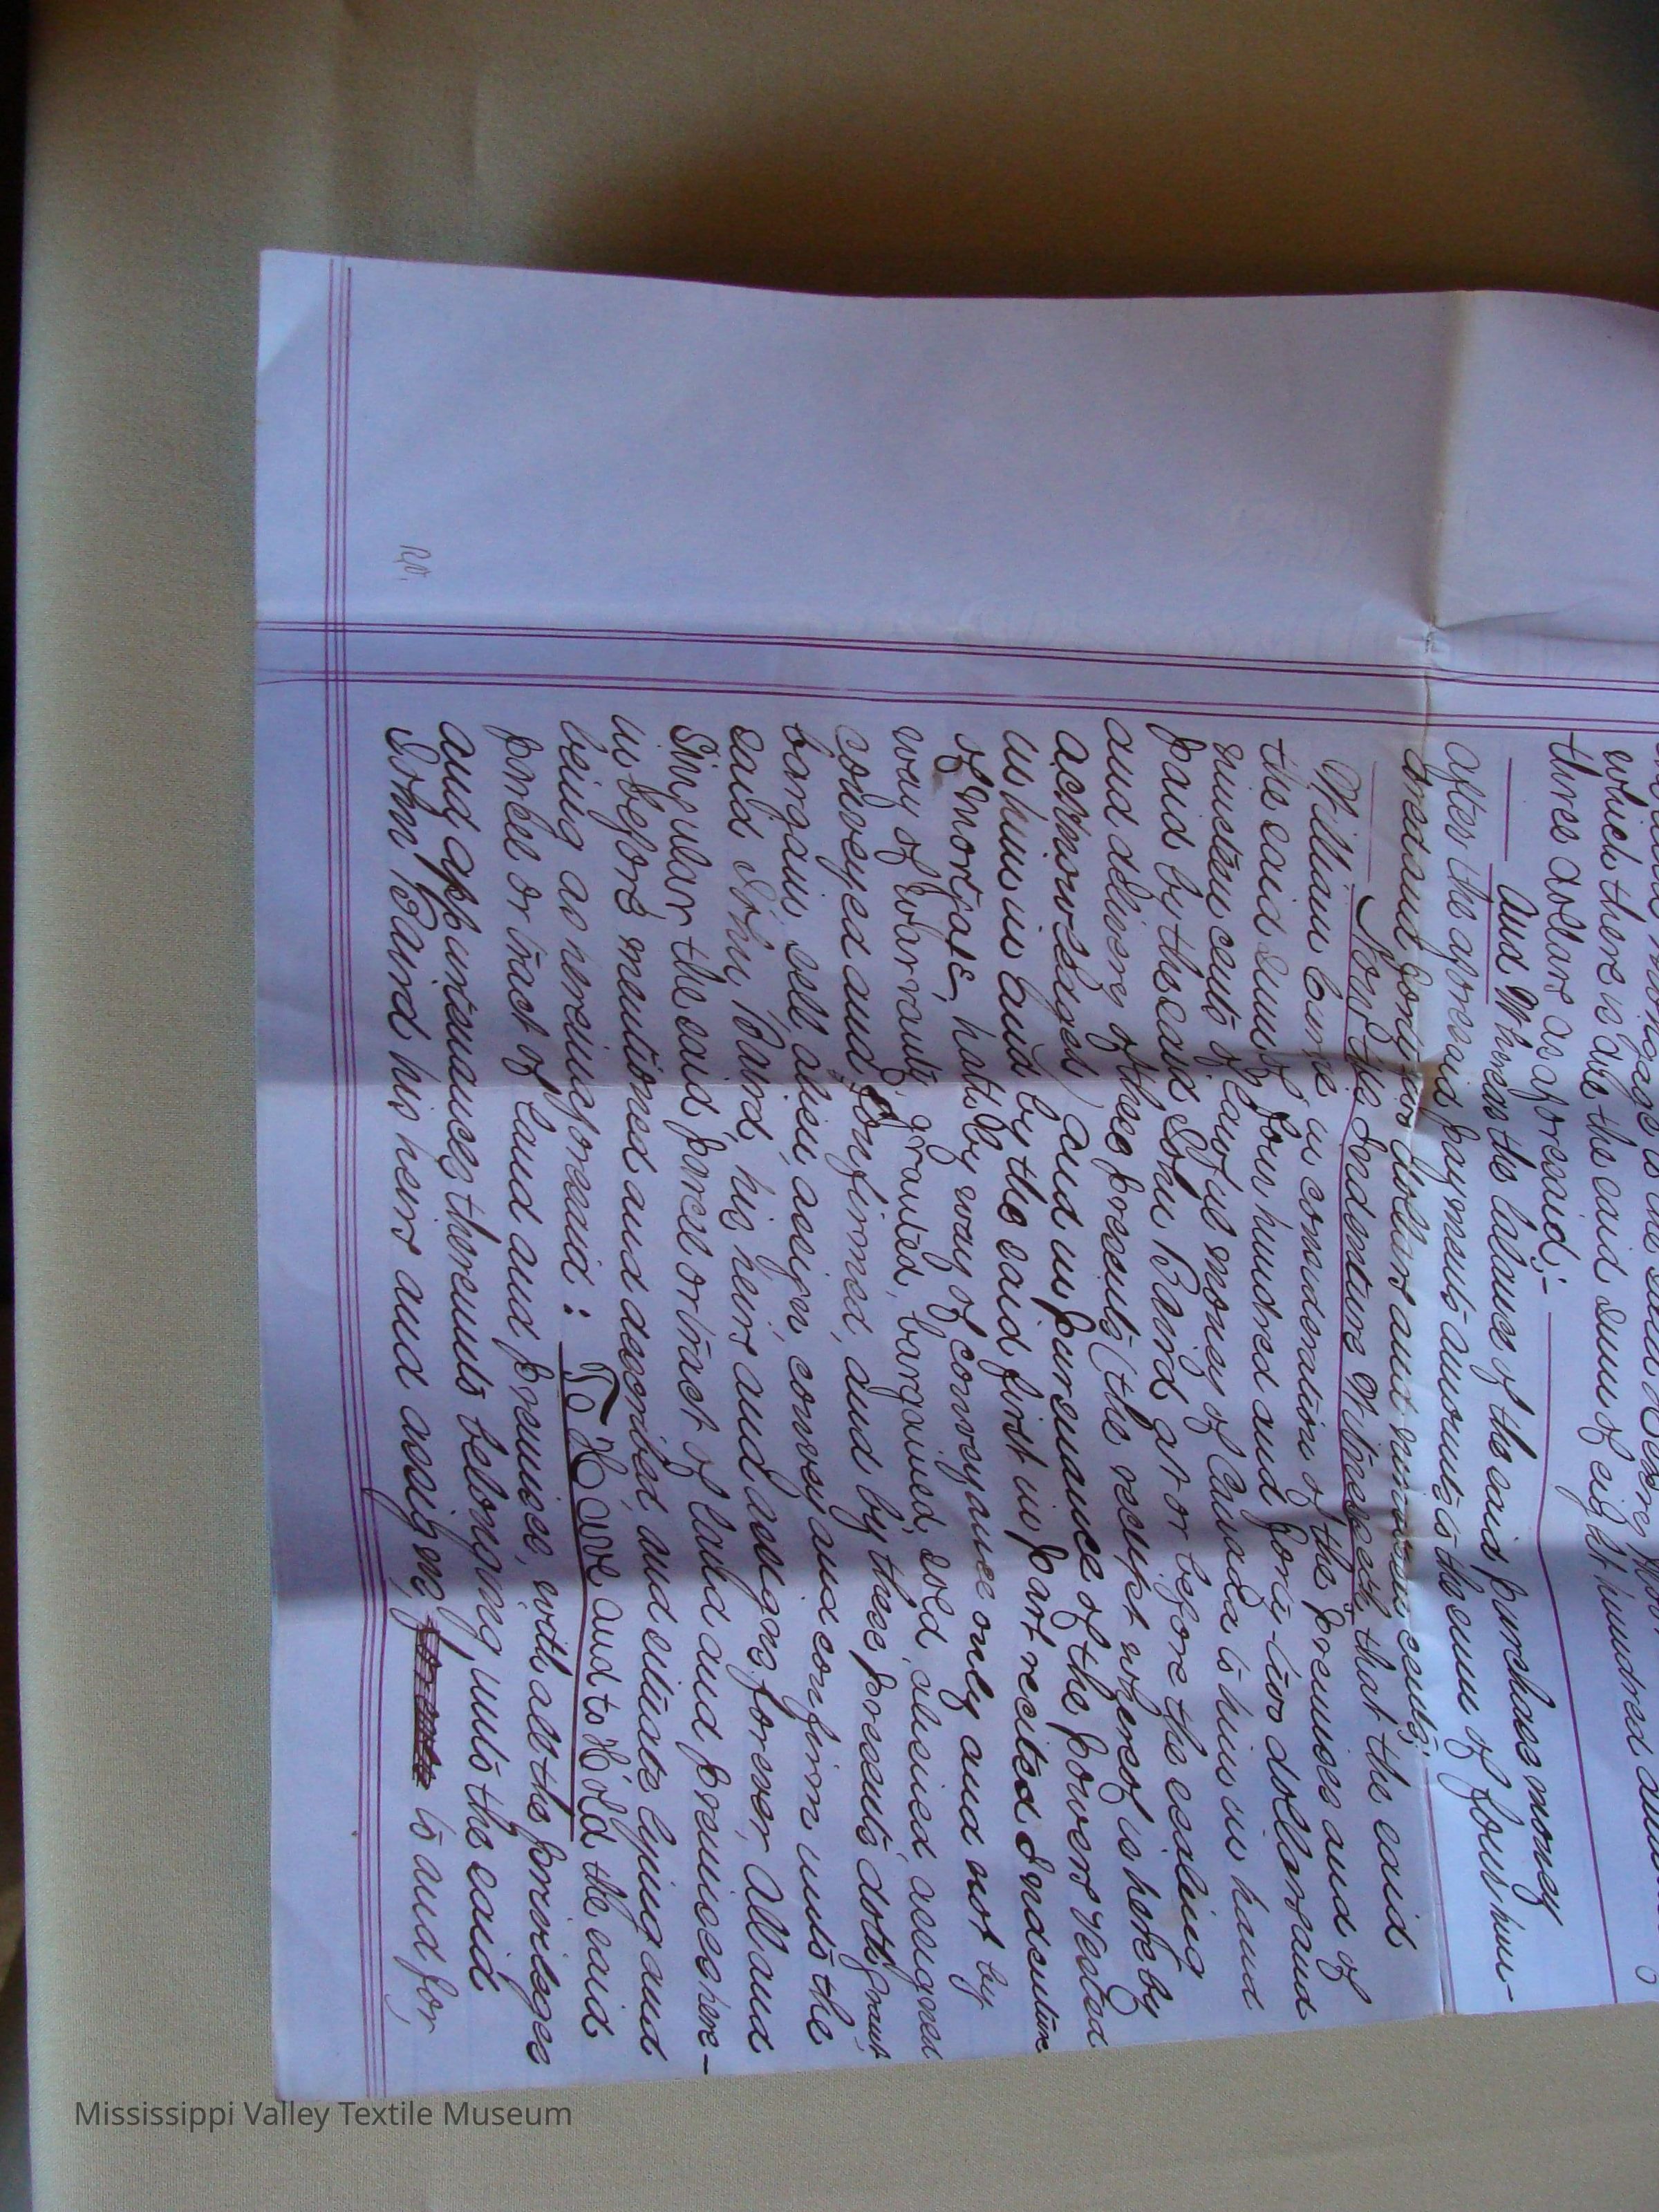 which there is due the said sum of eight hundred and
three dollars as aforesaid;-
And Whereas the balance of the said purchase money
after the aforesaid payments amounts to the sum of four hun-
dred and forty two dollars and nineteen cents;
Now this Indenture Witnesseth, that the said
William Burns, in consideration of the premises and of
the said sum of four hundred and forty-two dollars and
nineteen cents of lawful money of Canada to him in hand
paid by the said John Baird at or before the ensealing
and delivery of these presents (the receipt whereof is hereby
acknowledged) and in pursuance of the powers vested
in him in and by the said first in part recited Indenture
of Mortgage, hath by way of conveyance only and not by
way of warranty, granted, bargained, sold, aliened, assigned
conveyed and confirmed, and by these presents, doth grant,
bargain, sell, alien, assign, convey and confirm unto the
said John Baird, his heirs and assigns, forever, All and
Singular the said parcel or tract of land and premises here-
in before mentioned and described, and situate lying and
being as hereinaforesaid: To Have and to Hold the said
parcel or tract of land and premises, with all the privileges
and appurtenances thereunto belonging, unto the said
John Baird his heirs and assigns, to and for
Mississippi Valley Textile Museum